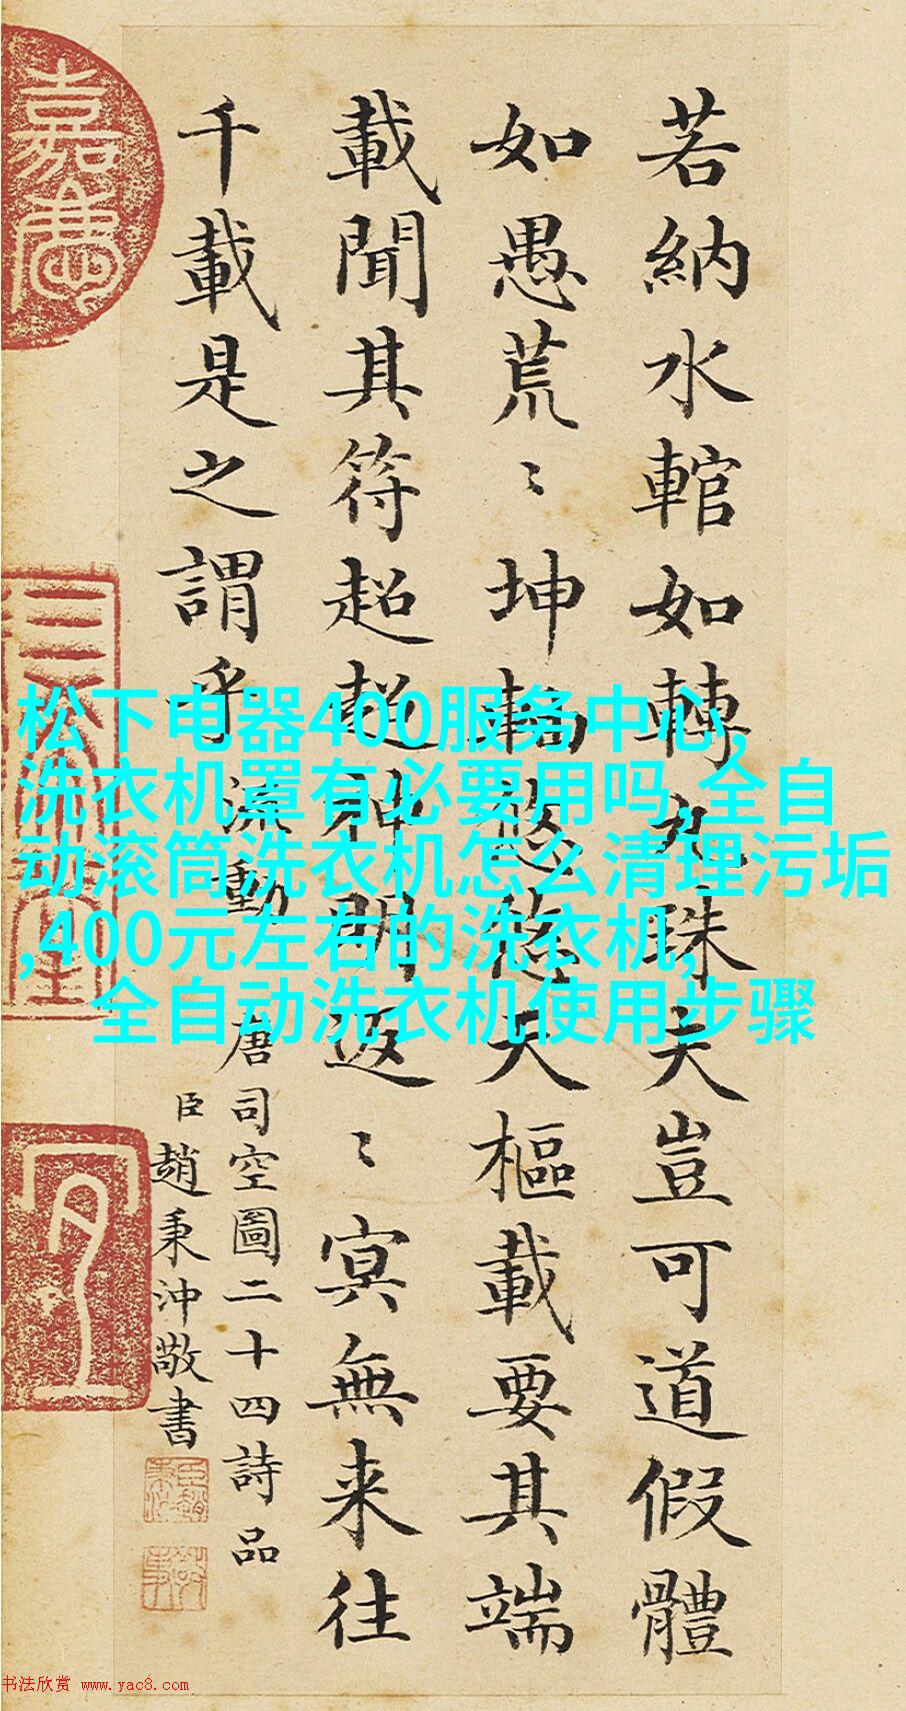 若納水輨如轉丸珠夫豈可道假體
如愚荒〻坤軸悠悠天樞載要其端
載聞其符超超神明返〻冥無来往
千載是之謂乎 流動
唐司空圖二十四詩品
臣趙秉沖敬書
嘉慶
松下电器400服务中心,
洗衣机罩有必要用吗,全自
动滚筒洗衣机怎么清理污垢
,400元左右的洗衣机,
全自动洗衣机使用步骤
书法欣赏 www.yac8.com